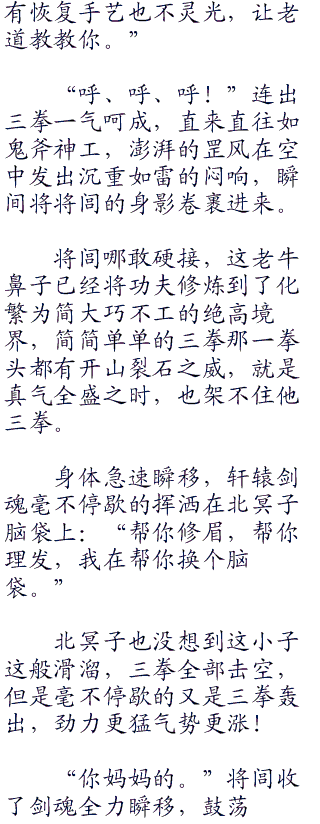 有恢复手艺也不灵光，让老
道教教你。”
“呼、呼、呼！”连出
三拳一气呵成，直来直往如
鬼斧神工，澎湃的罡风在空
中发出沉重如雷的闷响，瞬
间将将闾的身影卷裹进来。
将闾哪敢硬接，这老牛
鼻子已经将功夫修炼到了化
繁为简大巧不工的绝高境
界，简简单单的三拳那一拳
头都有开山裂石之威，就是
真气全盛之时，也架不住他
三拳。
身体急速瞬移，轩辕剑
魂毫不停歇的挥洒在北冥子
脑袋上：“帮你修眉，帮你
理发，我在帮你换个脑
袋。”
北冥子也没想到这小子
这般滑溜，三拳全部击空，
但是毫不停歇的又是三拳轰
出，劲力更猛气势更涨！
“你妈妈的。”将闾收
了剑魂全力瞬移，鼓荡